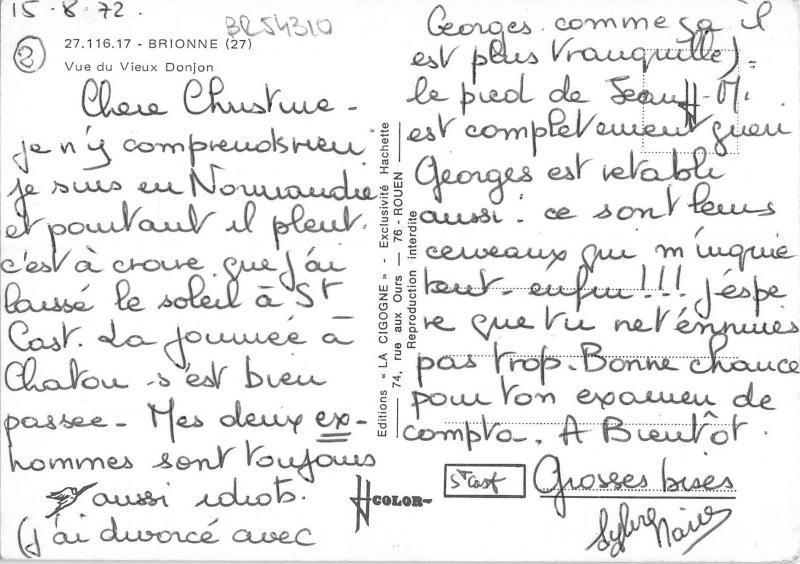 15.8.72.
BR54310
2
27.116.17 - BRIONNE (27)
Vue du Vieux Donjon
Chere Christine -
je n'y comprends rien
je suis en Normandie
et pourtant il pleut.
c'est à croire que j'ai
laissé le soleil à St
Cast. La journée à
Chatou s'est bien
passee - Mes deux ex-
hommes sont toujours
aussi idiots.
(j'ai divorcé avec
Editions « LA CIGOGNE » - Exclusivité Hachette
74, rue aux Ours - 76 - ROUEN
Reproduction interdite
COLOR
Georges comme ça il
est plus tranquille) -
le pied de Jean-M.
est completement gueri
Georges est retabli
aussi : ce sont leurs
cerveaux qui m'inquie
tent - enfin !!! j'éspe
re que tu ne t'énnuies
pas trop. Bonne chance
pour ton examen de
compta. A Bientôt.
St Cast
Grosses bises